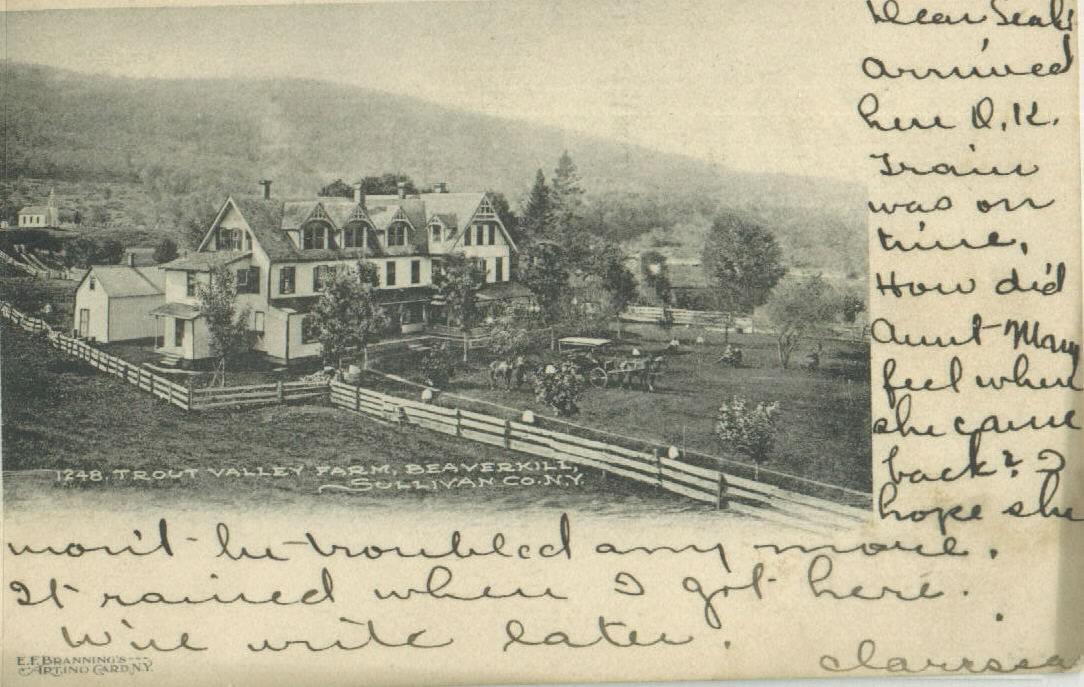 Dear
arrived
here O.K.
Train
was on
time,
How did
Aunt Mary
feel when
she came
back? I
hope she
won't be troubled any more.
It rained when I got here.
Will write later.
Clarissa
1248. TROUT VALLEY FARM, BEAVERKILL,
SULLIVAN CO. N.Y.
E.F. BRANNING'S
ARTINO CARD. N.Y.